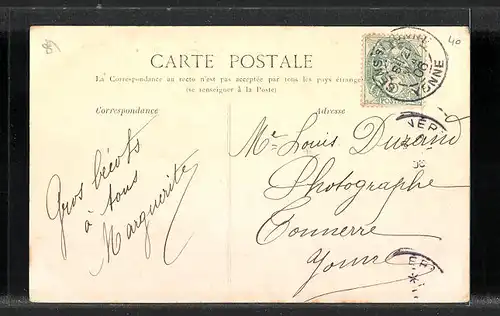 40
CARTE POSTALE
La Correspondance au recto n'est pas acceptée par tous les pays étrange
(se renseigner à la Poste)
Correspondance
Adresse
Gros bécots
à tous
Marguerite
Mr Louis Durand
Photographe
Tonnerre
Yonne
YONNE
06